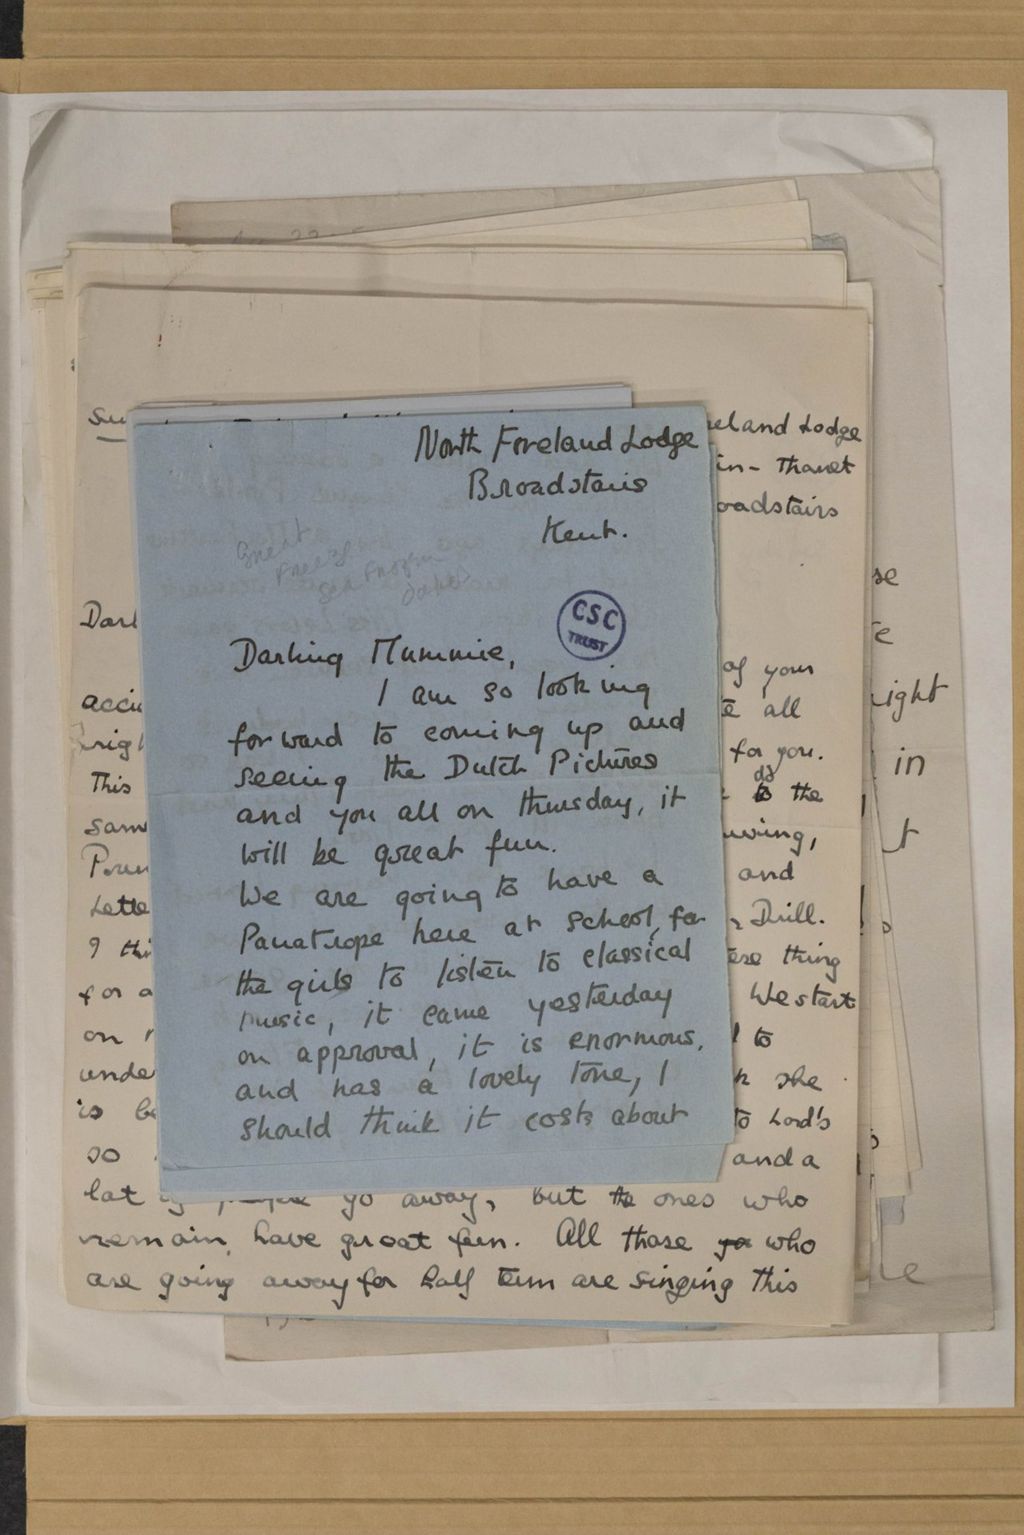 North Foreland Lodge
Broadstairs
Kent.
Great
Freeze
Sea Frozen
CSC
TRUST
Darling Mummie,
I am so looking
forward to coming up and
seeing the Dutch Pictures
and you all on thursday, it
will be great fun.
We are going to have a
Panatrope here at School, for
the girls to listen to classical
music, it came yesterday
on approval, it is enormous,
and has a lovely tone, I
should think it costs about
eland Lodge
in - Thanet
oadstairs
Darl
of your
accu
all
righ
for you.
This
to the
sam
wing,
and
Lette
Drill.
I thi
ese thing
for a
We start
on
to
unde
she
is be
to Lord's
so
and a
lot go away, but the ones who
remain, have great fun. All those who
are going away for half term are singing this
se
te
ight
in
t